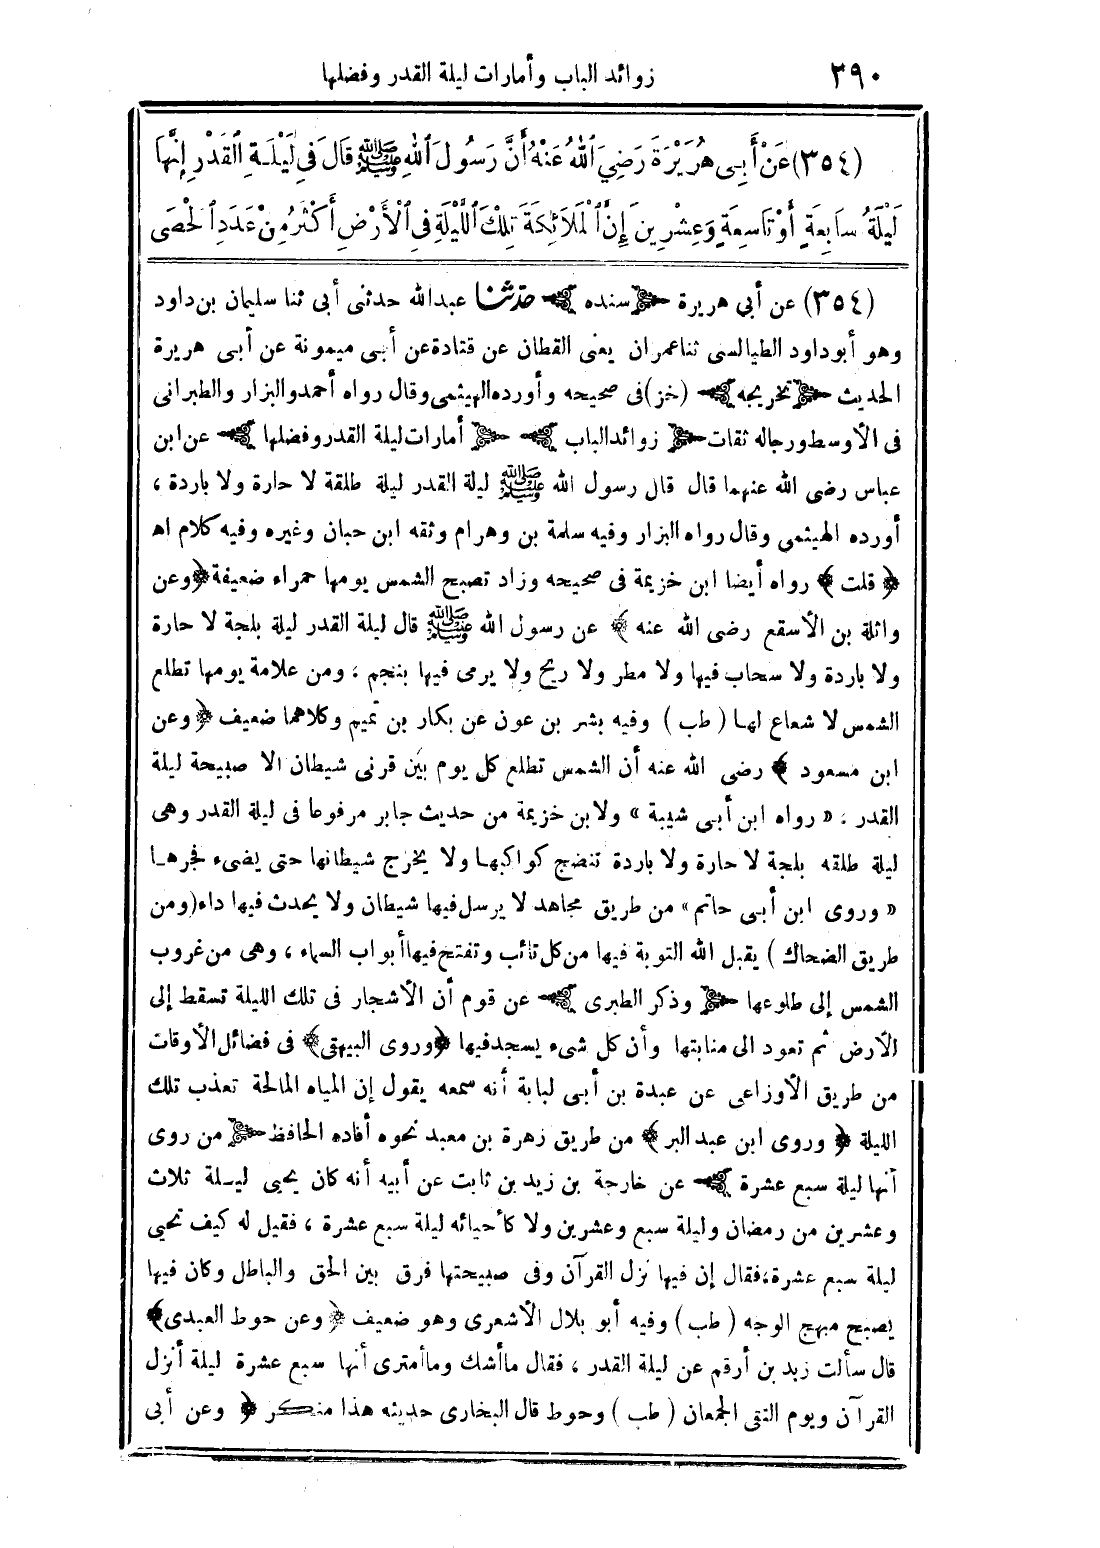 ٣٩٠ زوائد الباب وأمارات ليلة القدر وفضلها
(٣٥٤) عَنْ أَبِى هُرَيْرَةَ رَضِيَ اللهُ عَنْهُ أَنَّ رَسُولَ اللهِ ﷺ قَالَ فِي لَيْلَةِ الْقَدْرِ إِنَّهَا
لَيْلَةُ سَابِعَةٍ أَوْ تَاسِعَةٍ وَعِشْرِينَ إِنَّ الْمَلَائِكَةَ تِلْكَ اللَّيْلَةَ فِي الْأَرْضِ أَكْثَرُ مِنْ عَدَدِ الْحَصَى
(٣٥٤) عن أبي هريرة ﴿سنده﴾ حدّثنا عبدالله حدثنى أبى ثنا سليمان بن داود
وهو أبو داود الطيالسى ثنا عمران يعنى القطان عن قتادة عن أبى ميمونة عن أبى هريرة
الحديث ﴿تخريجه﴾ (خز) فى صحيحه وأورده الهيثمى وقال رواه أحمد والبزار والطبرانى
فى الأوسط ورجاله ثقات ﴿زوائد الباب﴾ ﴿أمارات ليلة القدر وفضلها﴾ عن ابن
عباس رضى الله عنهما قال قال رسول الله ﷺ ليلة القدر ليلة طلقة لا حارة ولا باردة ،
أورده الهيثمى وقال رواه البزار وفيه سلمة بن وهرام وثقه ابن حبان وغيره وفيه كلام اه
﴿قلت﴾ رواه أيضا ابن خزيمة فى صحيحه وزاد تصبح الشمس يومها حمراء ضعيفة ﴿وعن
واثلة بن الأسقع رضى الله عنه﴾ عن رسول الله ﷺ قال ليلة القدر ليلة بلجة لا حارة
ولا باردة ولا سحاب فيها ولا مطر ولا ريح ولا يرمى فيها بنجم ، ومن علامة يومها تطلع
الشمس لا شعاع لها (طب) وفيه بشر بن عون عن بكار بن تميم وكلاهما ضعيف ﴿وعن
ابن مسعود﴾ رضى الله عنه أن الشمس تطلع كل يوم بين قرنى شيطان الا صبيحة ليلة
القدر ، « رواه ابن أبى شيبة » ولابن خزيمة من حديث جابر مرفوعا فى ليلة القدر وهى
ليلة طلقه بلجة لا حارة ولا باردة تنضج كواكبها ولا يخرج شيطانها حتى يضىء فجرها
« وروى ابن أبى حاتم » من طريق مجاهد لا يرسل فيها شيطان ولا يحدث فيها داء (ومن
طريق الضحاك) يقبل الله التوبة فيها من كل تائب وتفتح فيها أبواب السماء ، وهى من غروب
الشمس إلى طلوعها ﴿وذكر الطبرى﴾ عن قوم أن الأشجار فى تلك الليلة تسقط إلى
الأرض ثم تعود الى منابتها وأن كل شىء يسجد فيها ﴿وروى البيهقى﴾ فى فضائل الأوقات
من طريق الأوزاعى عن عبدة بن أبى لبابة أنه سمعه يقول إن المياه المالحة تعذب تلك
الليلة ﴿وروى ابن عبد البر﴾ من طريق زهرة بن معبد نحوه أفاده الحافظ ﴿من روى
أنها ليلة سبع عشرة﴾ عن خارجة بن زيد بن ثابت عن أبيه أنه كان يحيى ليلة ثلاث
وعشرين من رمضان وليلة سبع وعشرين ولا كأحيائه ليلة سبع عشرة ، فقيل له كيف تحيى
ليلة سبع عشرة،فقال إن فيها نزل القرآن وفى صبيحتها فرق بين الحق والباطل وكان فيها
يصبح مبهج الوجه (طب) وفيه أبو بلال الأشعرى وهو ضعيف ﴿وعن حوط العبدى﴾
قال سألت زيد بن أرقم عن ليلة القدر ، فقال ما أشك وما أمترى أنها سبع عشرة ليلة أنزل
القرآن ويوم التقى الجمعان (طب) وحوط قال البخارى حديثه هذا منكر ﴿ وعن أبى